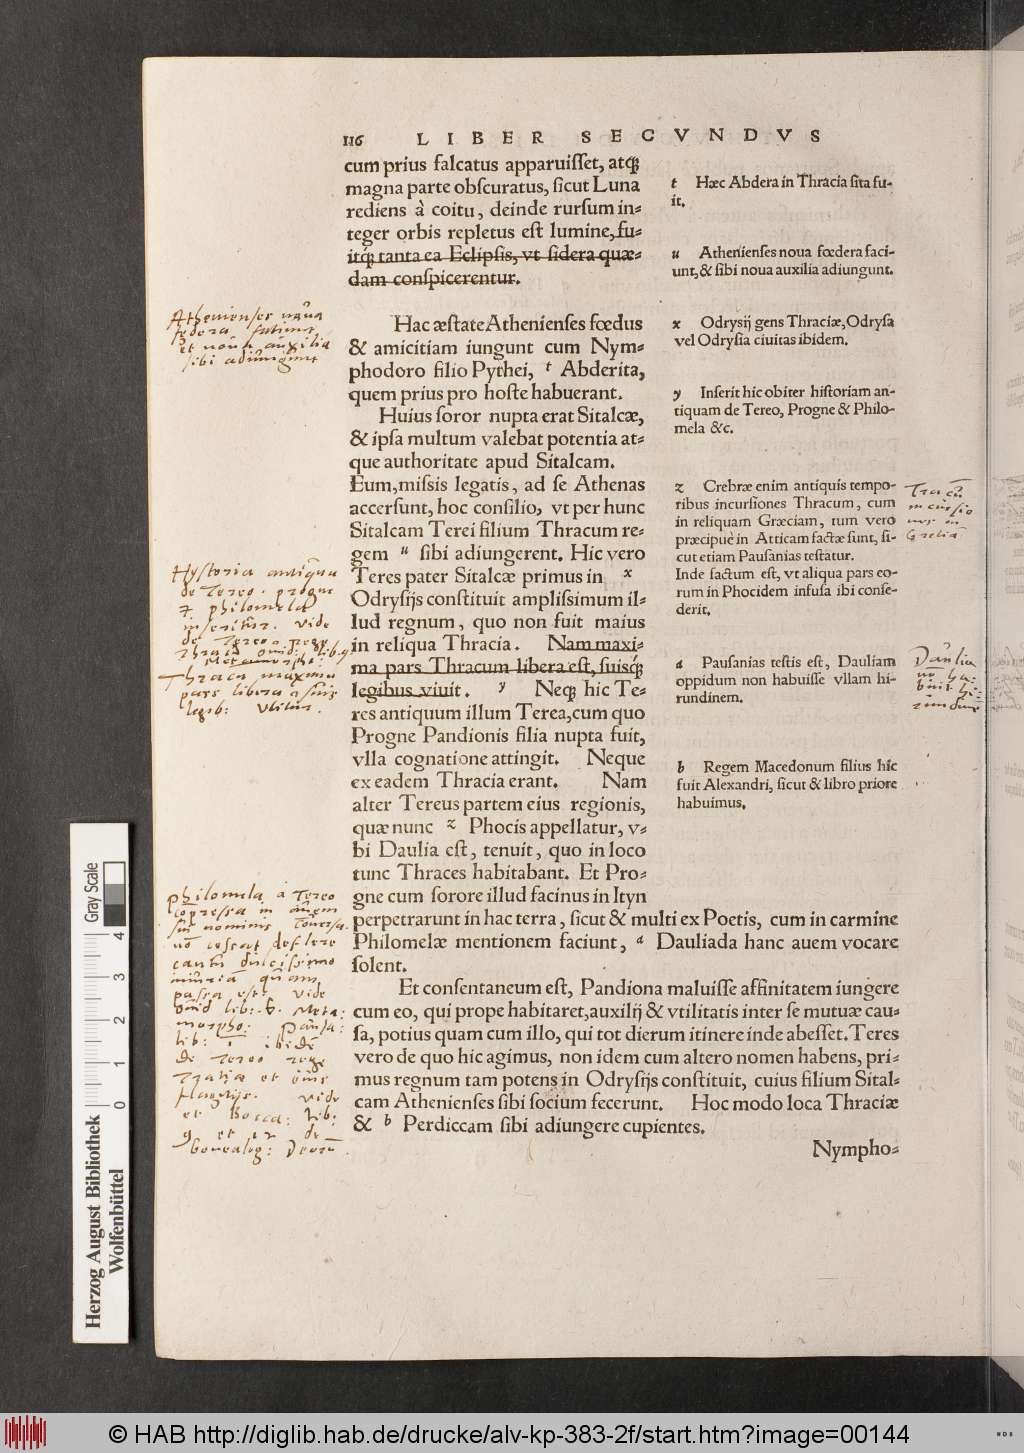 116 LIBER SECVNDVS
cum prius falcatus apparuiſſet, atq́ꝫ
magna parte obſcuratus, ſicut Luna
rediens à coitu, deinde rurſum in⸗
teger orbis repletus eſt lumine, fu⸗
itq́ꝫ tanta ea Eclipſis, vt ſidera quæ⸗
dam conſpicerentur.
Hac æſtate Athenienſes fœdus
& amicitiam iungunt cum Nym⸗
phodoro filio Pythei, t Abderita,
quem prius pro hoſte habuerant.
Huius ſoror nupta erat Sitalcæ,
& ipſa multum valebat potentia at⸗
que authoritate apud Sitalcam.
Eum, miſsis legatis, ad ſe Athenas
accerſunt, hoc conſilio, vt per hunc
Sitalcam Terei filium Thracum re⸗
gem u ſibi adiungerent. Hic vero
Teres pater Sitalcæ primus in x
Odryſijs conſtituit ampliſsimum il⸗
lud regnum, quo non fuit maius
in reliqua Thracia. Nam maxi⸗
ma pars Thracum libera eſt, ſuisq́ꝫ
legibus viuit. y Neqꝫ hic Te⸗
res antiquum illum Terea, cum quo
Progne Pandionis filia nupta fuit,
vlla cognatione attingit. Neque
ex eadem Thracia erant. Nam
alter Tereus partem eius regionis,
quæ nunc z Phocis appellatur, v⸗
bi Daulia eſt, tenuit, quo in loco
tunc Thraces habitabant. Et Pro⸗
gne cum ſorore illud facinus in Ityn
perpetrarunt in hac terra, ſicut & multi ex Poetis, cum in carmine
Philomelæ mentionem faciunt, a Dauliada hanc auem vocare
ſolent.
Et conſentaneum eſt, Pandiona maluiſſe affinitatem iungere
cum eo, qui prope habitaret, auxilij & vtilitatis inter ſe mutuæ cau⸗
ſa, potius quam cum illo, qui tot dierum itinere inde abeſſet. Teres
vero de quo hic agimus, non idem cum altero nomen habens, pri⸗
mus regnum tam potens in Odryſijs conſtituit, cuius filium Sital⸗
cam Athenienſes ſibi ſocium fecerunt. Hoc modo loca Thraciæ
& b Perdiccam ſibi adiungere cupientes.
Nympho⸗
t Hæc Abdera in Thracia ſita fu-
it.
u Athenienſes noua fœdera faci-
unt, & ſibi noua auxilia adiungunt.
x Odrysij gens Thraciæ, Odryſa
vel Odryſia ciuitas ibidem.
y Inſerit hic obiter hiſtoriam an-
tiquam de Tereo, Progne & Philo-
mela &c.
z Crebræ enim antiquis tempo-
ribus incurſiones Thracum, cum
in reliquam Græciam, tum vero
præcipuè in Atticam factæ ſunt, ſi-
cut etiam Pauſanias teſtatur.
Inde factum eſt, vt aliqua pars eo-
rum in Phocidem infuſa ibi conſe-
derit.
a Pauſanias teſtis eſt, Dauliam
oppidum non habuiſſe vllam hi-
rundinem.
b Regem Macedonum filius hic
fuit Alexandri, ſicut & libro priore
habuimus.
Athenienses noua
federa
et noua auxilia
sibi adiungunt
Hystoria antiqua
de Tereo. progne
& philomela
inseritur. vide
de Tereo rege
Thraciae ouid: lib. 9
Thraca maxima
pars libera suis
legib:
philomela a Tereo
in auem
sui nominis conuersa.
no cessat deflere
cantu dulcissimo
iniuria quam
passa est. vide
Ouid lib: 6. Meta:
morpho: Pausa:
lib: 1 ibide
de Tereo rege
et
vide
et Bocca: lib:
9 et 12 de
Genealog: Deoru.
Tracu
incursio
nes in
Grecia
Daulia
no ha:
buit hi:
rundine
Gray Scale
0 1 2 3 4
Herzog August Bibliothek
Wolfenbüttel
© HAB http://diglib.hab.de/drucke/alv-kp-383-2f/start.htm?image=00144